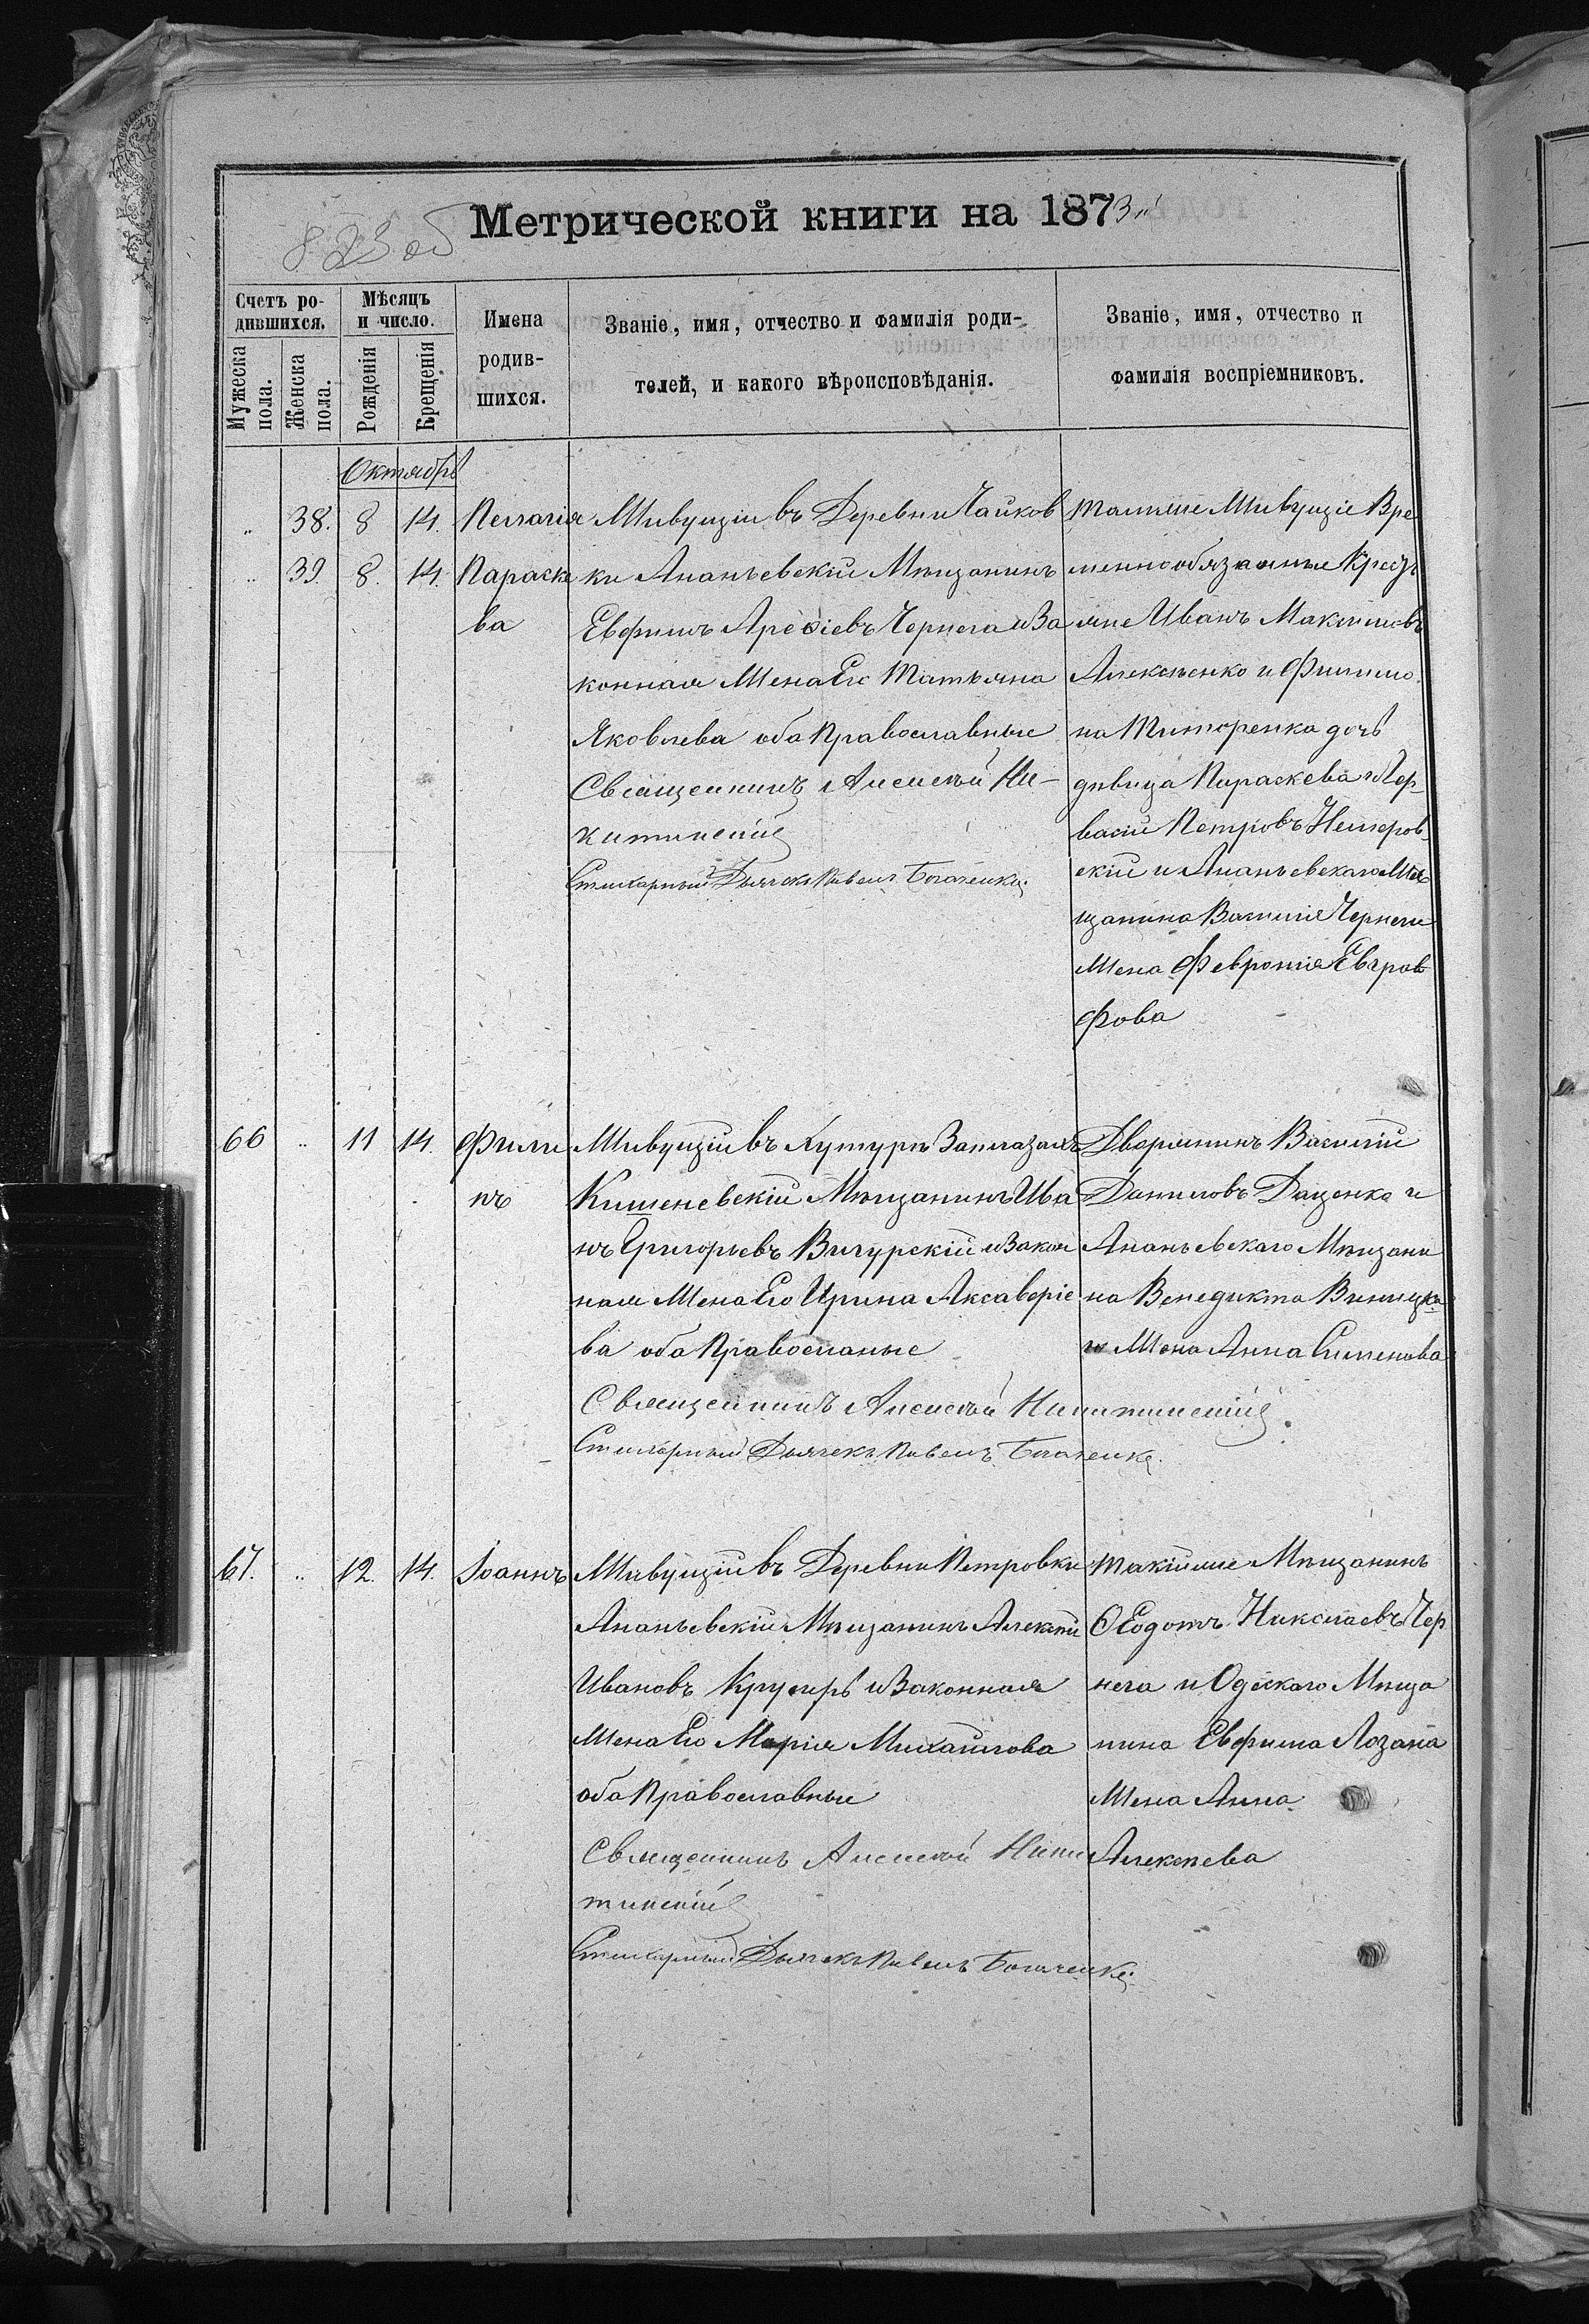 Метрической книги на 1873й
823 об
Счетъ родившихся.
Мѣсяцъ и число.
Имена родившихся.
Званіе, имя, отчество и фамилія родителей, и какого вѣроисповѣданія.
Званіе, имя, отчество и фамилія воспріемниковъ.
Мужеска пола.
Женска пола.
Рожденія
Крещенія
Октябрь
„ 38. 8 14. Пелагія Живущій въ Деревни Чайков
„ 39. 8. 14. Параске ки Ананьевскій Мѣщанинъ
ва Евфимъ Арефіевъ Чернега и За
конная Жена Его Татьяна
Яковлева оба Православные
Священникъ Алексѣй Ни-
китинскій
Стихарный Дьячекъ Павелъ Богаченко.
тамже Живущіе Вре
меннообязанные Кресть
яне Иванъ Максимовъ
Алексѣенко и Филимо
на Титоренка дочь
дѣвица Параскева и Гер
васій Петровъ Немеров
скій и Ананьевскаго Мѣ
щанина Василія Чернеги
Жена Февронія Евграф
фова
66 „ 11 14. Фили Живущій въ Хуторѣ Заплазахъ
пъ Кишеневскій Мѣщанинъ Ива
нъ Григорьевъ Вигурскій и Закон
ная Жена Его Ирина Аксаверіе
ва оба Православные
Священникъ Алексѣй Никитинскій.
Стихарный Дьячекъ Павелъ Богаченко.
Дворянинъ Василій
Даниловъ Даценко и
Ананьевскаго Мѣщани
на Венедикта Виницка
го Жена Анна Сименова
67. „ 12. 14. Іоаннъ Живущій въ Деревни Петровки
Ананьевскій Мѣщанинъ Алексѣй
Ивановъ Кругирь и Законная
Жена Его Марія Михайлова
оба Православные
Священникъ Алексѣй Ники
тинскій
Стихарный Дьячекъ Павелъ Богаченко.
такійже Мѣщанинъ
Ѳеодотъ Николаевъ Чер
нега и Одескаго Мѣща
нина Евфима Лозана
Жена Анна
Алексѣева